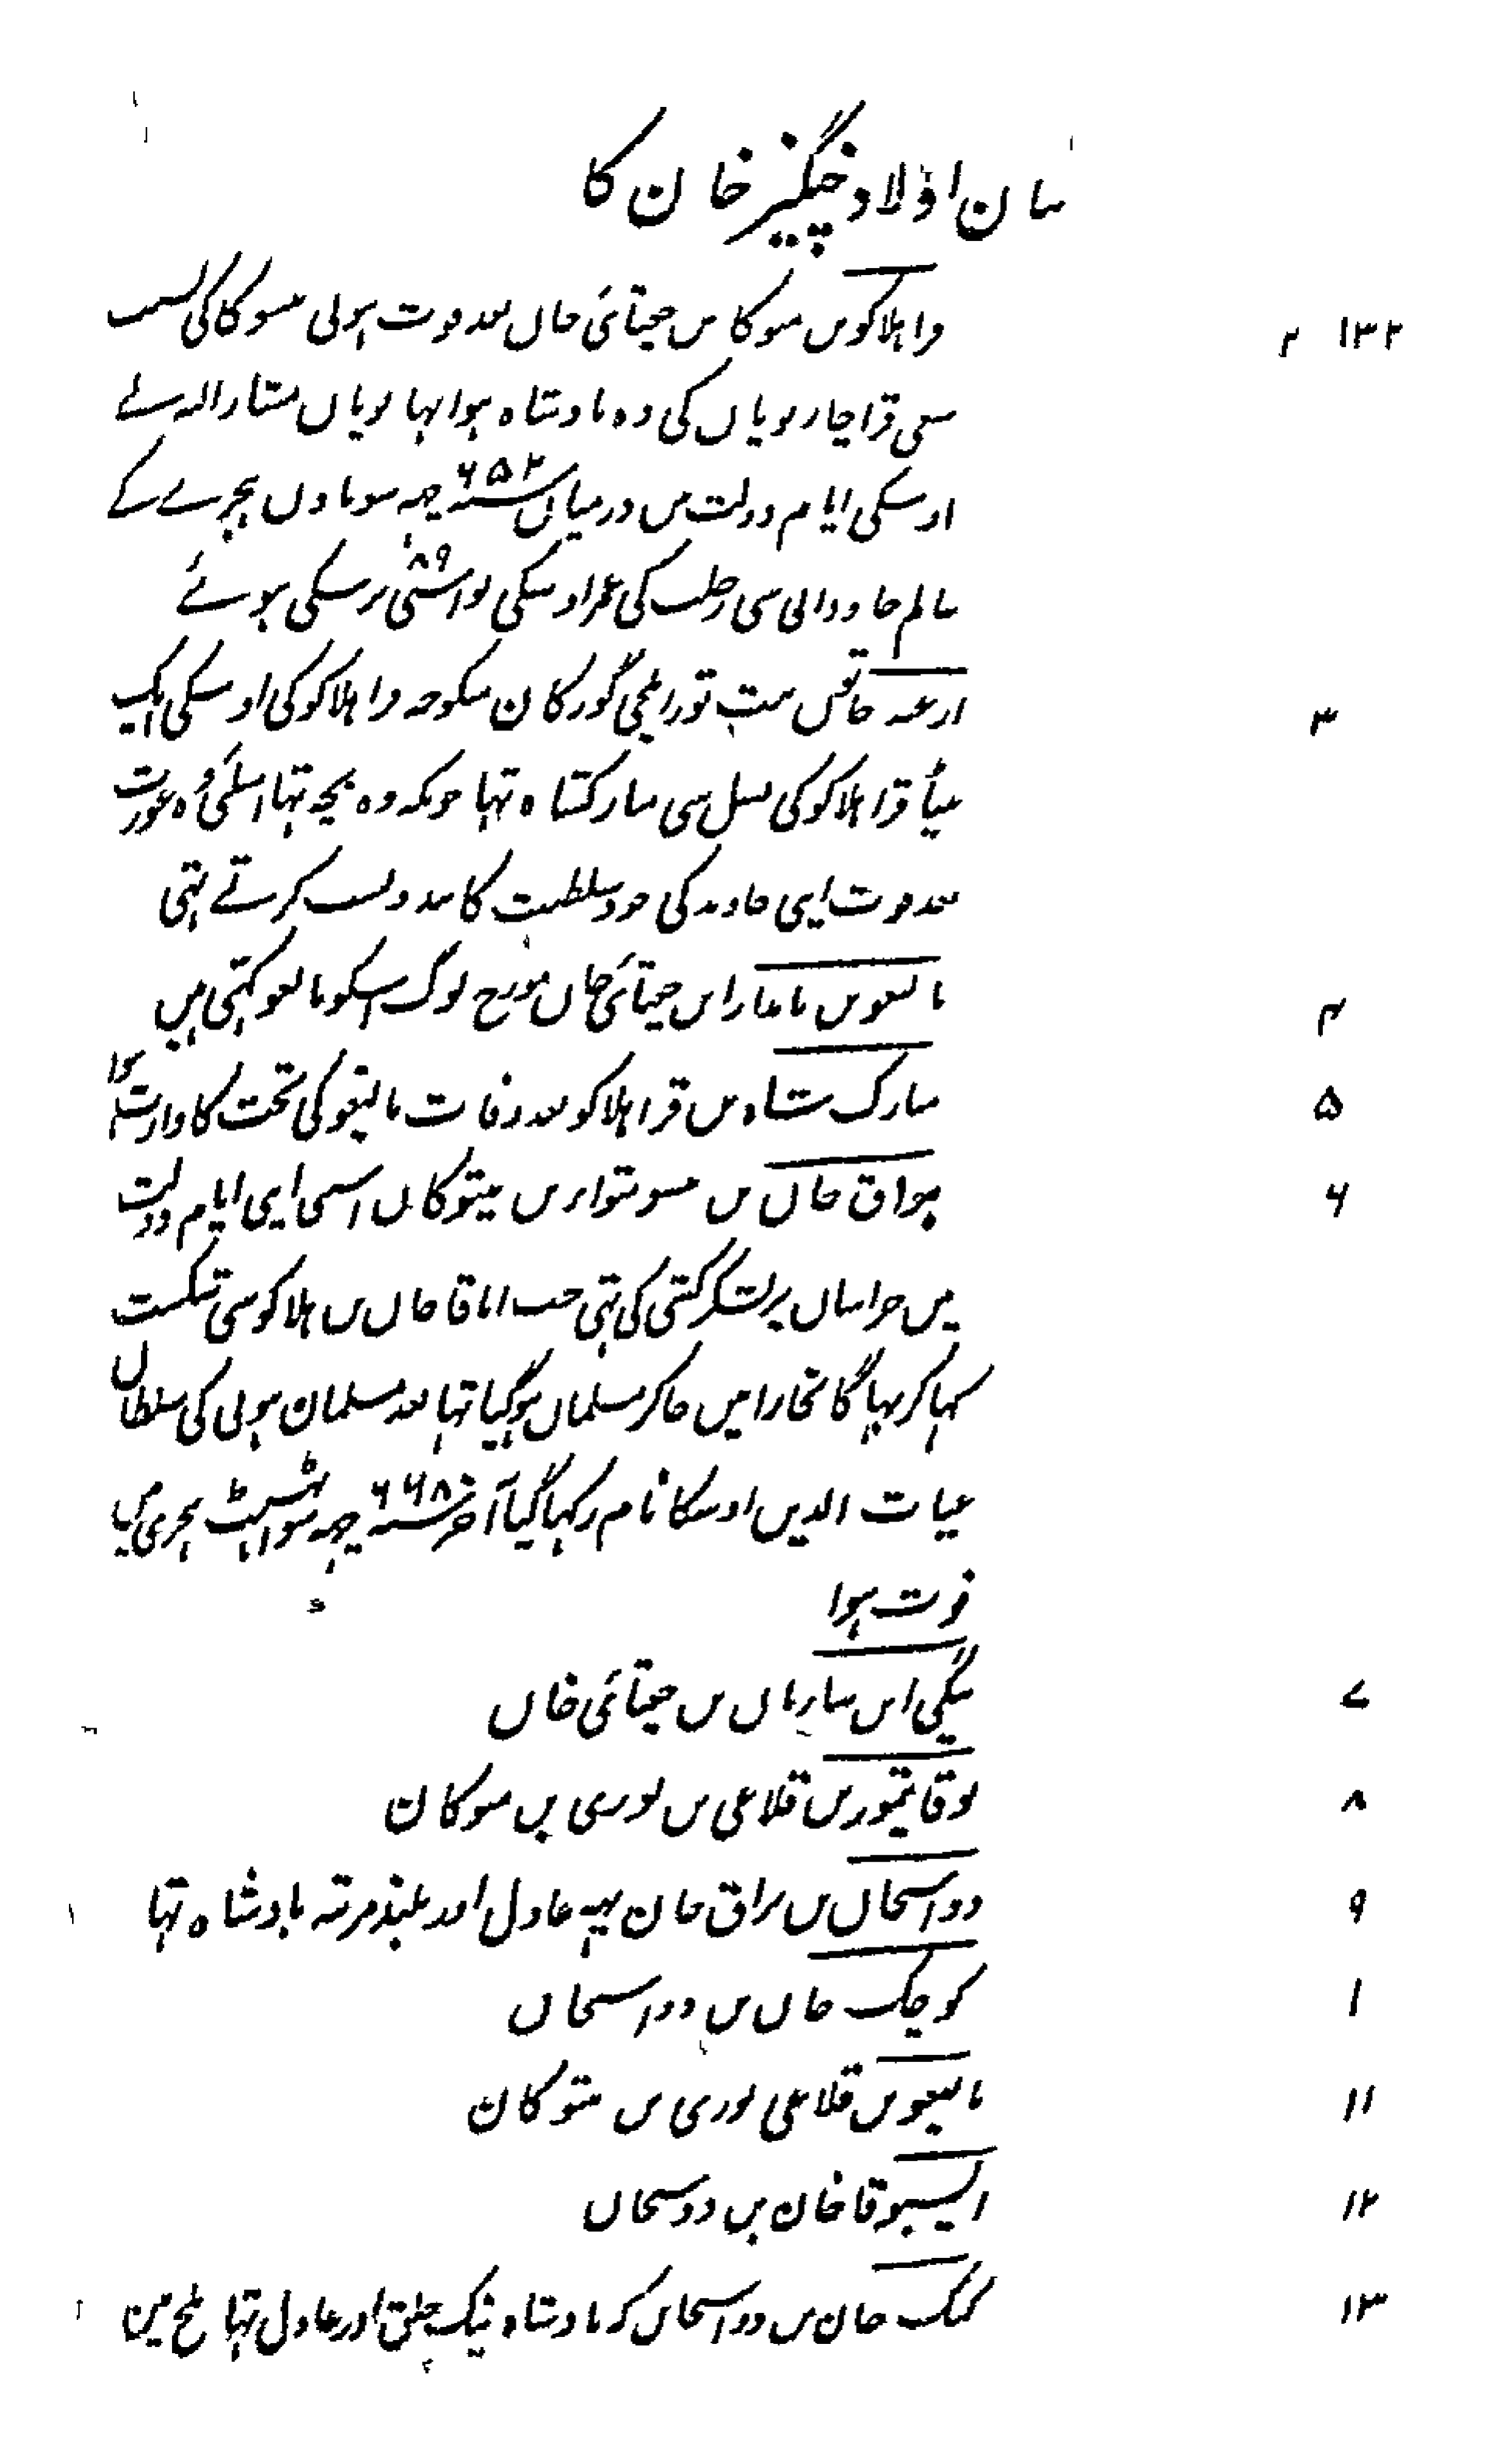 بیان اولاد چنگیز خان کا
۱۳۲ ۲ قرا ہلاکو بن موتکا بن چغتائی خان بعد فوت ہونی میسوکا کی بسبب
سعی قراچار نویاں کی وہ بادشاہ ہوا تہا نویاں مشار الیہ نے
اوسکی ایام دولت میں درمیان سنہ ۶۵۲ چہہ سو باون ہجرے کے
عالم جاودانی سی رحلت کی عمر اوسکی نواشی ۸۹ برسکی ہوئے
۳ ارغنہ خاتون بنت تورالچی گورکان منکوحہ قرا ہلاکو کی اوسکی ایک
بیٹا قرا ہلاکو کی نسل سی مبارکشاہ تہا چونکہ وہ بچہ تہا اسلئی وہ عورت
بعد فوت اپنی خاوند کی خود سلطنت کا بندوبست کرتے تہی
۴ بالغو بن بایدار ابن چغتائی خان مورخ لوگ اسکو بالغو کہتی ہیں
۵ مبارک شاہ بن قرا ہلاکو بعد وفات بالیغو کی تخت کا وارث ہوا
۶ براق خان بن میسونتوا بن میتوکان اسنی اپنی ایام دولت
میں خراسان پر لشکر کشی کی تہی جب اباقا خان بن ہلاکو سی شکست
کہا کر بہاگا بخارا میں جاکر مسلمان ہوگیا تہا بعد مسلمان ہونی کی سلطان
غیاث الدین اوسکا نام رکہا گیا آخر سنہ ۶۶۸ چہہ سو اٹہسٹ ہجری میں
فوت ہوا
۷ نیکی ابن ساربان بن چغتائی خان
۸ بوقا تیمور بن قلاغی بن بوری بن موتکان
۹ دوا سخان بن براق خان یہہ عادل اور بلند مرتبہ بادشاہ تہا
۱ کوچک خان بن دوا سخان
۱۱ بالیغو بن قلاغی بوری بن متوکان
۱۲ ایسبوقا خان بن دوسخان
۱۳ کپک خان بن دوا سخان کہ بادشاہ نیک خلق اور عادل تہا بلخ مین